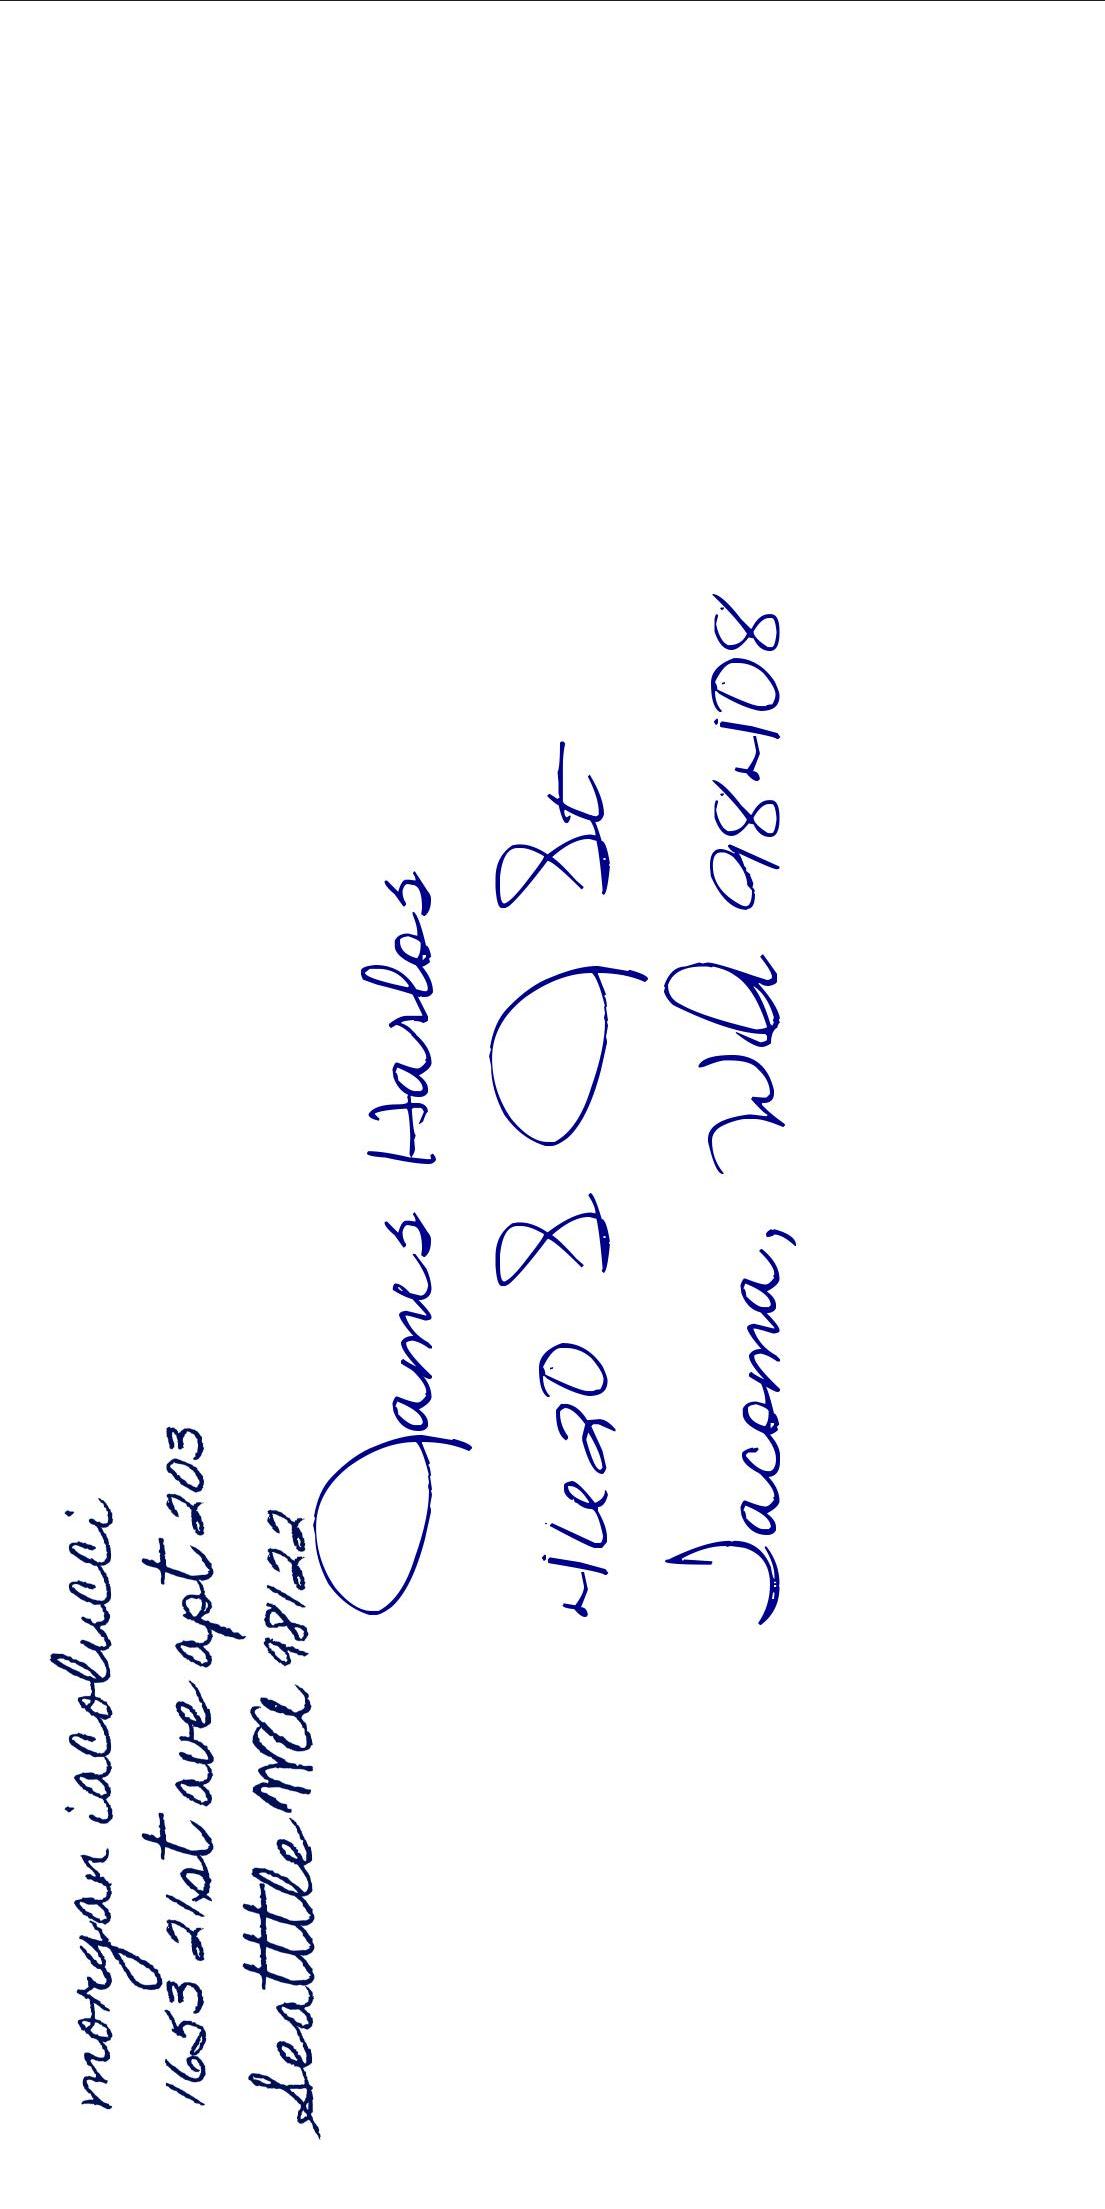 morgan iacolucci
1653 21st ave apt 203
Seattle WA 98122
James Harlos
4620 S J St
Tacoma, WA 98408